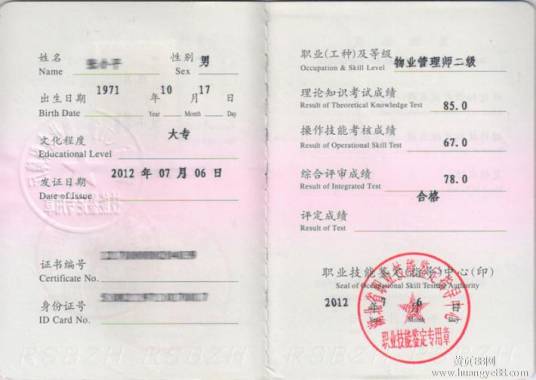 姓名 性别 男
Name Sex
1971 10 17
出生日期 年 月 日
Birth Date Year Month Day
大专
文化程度
Educational Level
2012 年 07 月 06 日
发证日期
Date of Issue
证书编号
Certificate No.
身份证号
ID Card No.
职业(工种)及等级 物业管理师二级
Occupation & Skill Level
理论知识考试成绩
Result of Theoretical Knowledge Test 85.0
操作技能考核成绩
Result of Operational Skill Test 67.0
综合评审成绩
Result of Integrated Test 78.0
合格
评定成绩
Result of Test
职业技能鉴定(指导)中心(印)
Seal of Occupational Skill Testing Authority
2012 7 6 日
职业技能鉴定专用章
黄页88网
www.huangye88.com